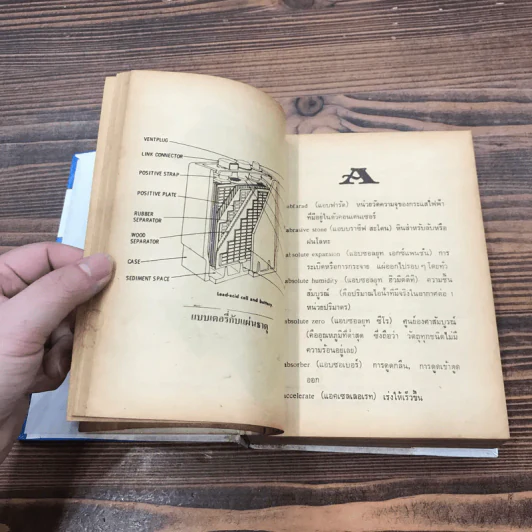 VENTPLUG
LINK CONNECTOR
POSITIVE STRAP
POSITIVE PLATE
RUBBER
SEPARATOR
WOOD
SEPARATOR
CASE
SEDIMENT SPACE
Lead-acid cell and battery
แบบเตอรี่กับแผ่นธาตุ
A
(แอบฟารัด) หน่วยวัดความจุของกระแสไฟฟ้า
ที่มีอยู่ในตัวคอนเดนเซอร์
abrasive stone (แอบบราซีฟ สะโตน) หินสำหรับลับหรือ
ฝนโลหะ
absolute expansion (แอบซอลยูท เอกซ์แพนชัน) การ
ระเบิดหรือการกระจาย แผ่ออกไปรอบๆ โดยทั่ว
absolute humidity (แอบซอลยูท ฮิวมิดิตี) ความชื้น
สัมบูรณ์ (คือปริมาณไอน้ำที่มีจริงในอากาศต่อ ๑
หน่วยปริมาตร)
absolute zero (แอบซอลยูท ซีโร) ศูนย์องศาสัมบูรณ์
(คืออุณหภูมิที่ต่ำสุด ซึ่งถือว่า วัตถุทุกชนิดไม่มี
ความร้อนอยู่เลย)
absorber (แอบซอเบอร์) การดูดกลืน, การดูดเข้าดูด
ออก
accelerate (แอคเซลเลอเรท) เร่งให้เร็วขึ้น